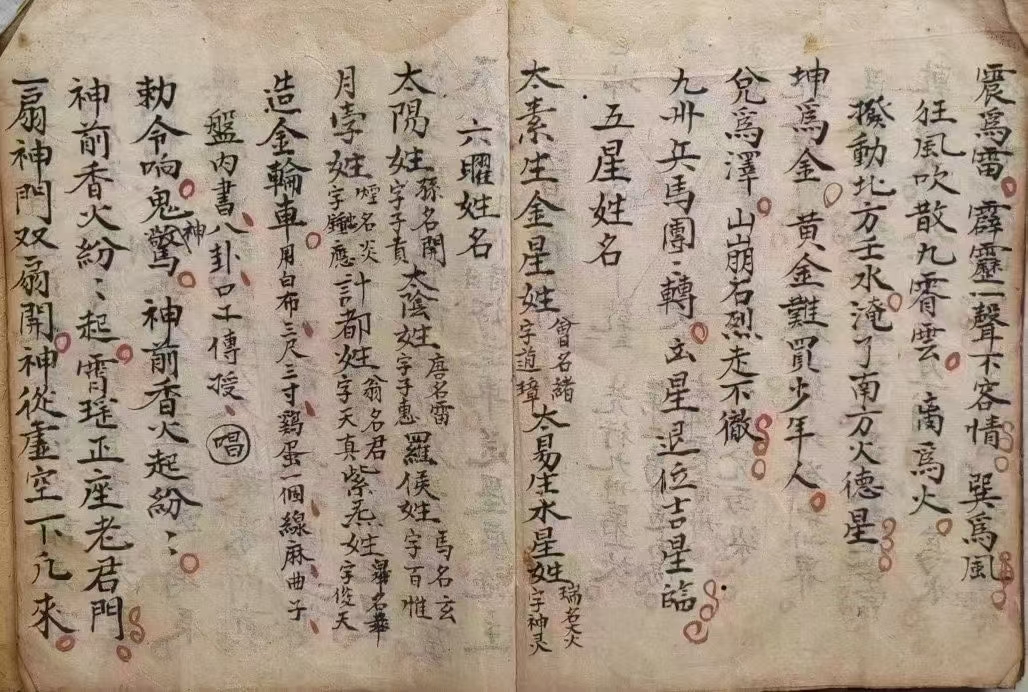 震爲雷 霹靂一聲不容情 巽爲風
狂風吹散九霄雲 离爲火
撥動北方壬水淹了南方火德星
坤爲金 黄金難買少年人
兌爲澤 山崩石烈走不徹
九州兵馬團〻轉 凶星退位吉星臨
五星姓名
太素生金星姓曾名諸字道璋 太易生水星姓瑞名火字神灵
六曜姓名
太陽姓孫名開字子真 太陰姓唐名雷字子惠 羅侯姓馬名玄字百惟
月孛姓名炎字應 計都姓翁名君字天真 紫炁姓名字俊天
造金輪車 用白布三尺三寸鷄蛋一個線麻曲子
盤内書八卦口工傳授 唱
勅令响鬼神驚 神前香火起紛〻
神前香火紛〻起 霄瑤正座老君門
一扇神門双扇開 神從虛空下凢來